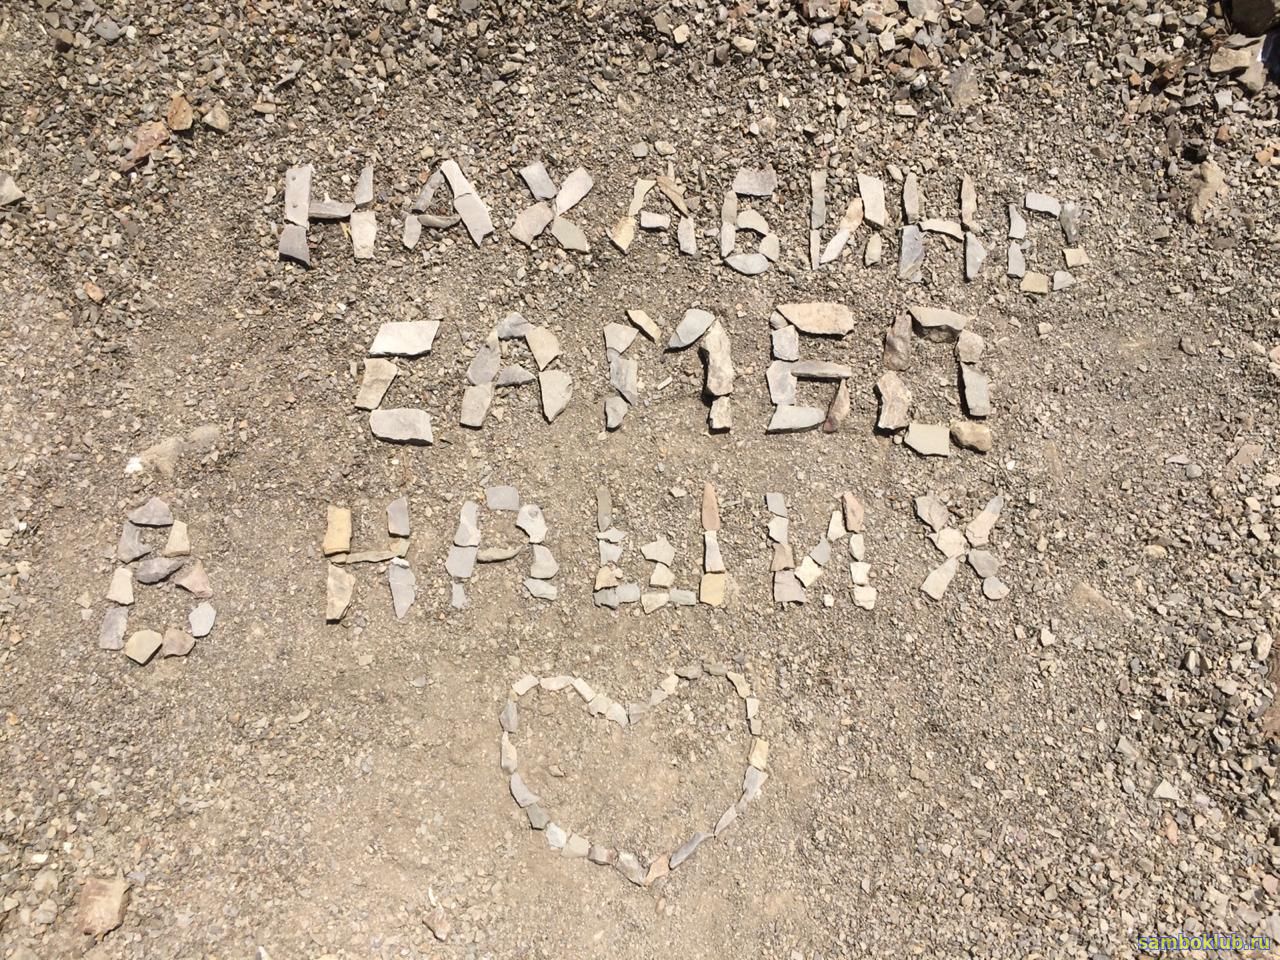 НАХАБИНО
САМБО
В НАШИХ
samboklub.ru